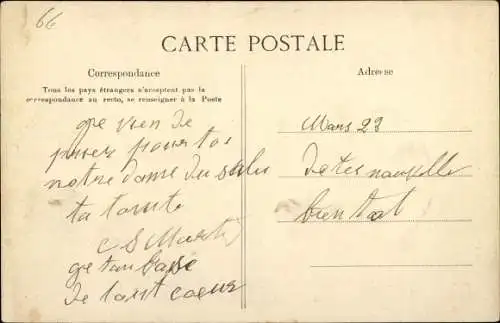 66
CARTE POSTALE
Correspondance
Adresse
Tous les pays étrangers n'acceptent pas la
correspondance au recto, se renseigner à la Poste
ge vien de
prier pour toi
notre dame du salu
ta tante
C S Marti
ge tan base
de tout coeur
Mars 23
de tes nouvelle
bien tot